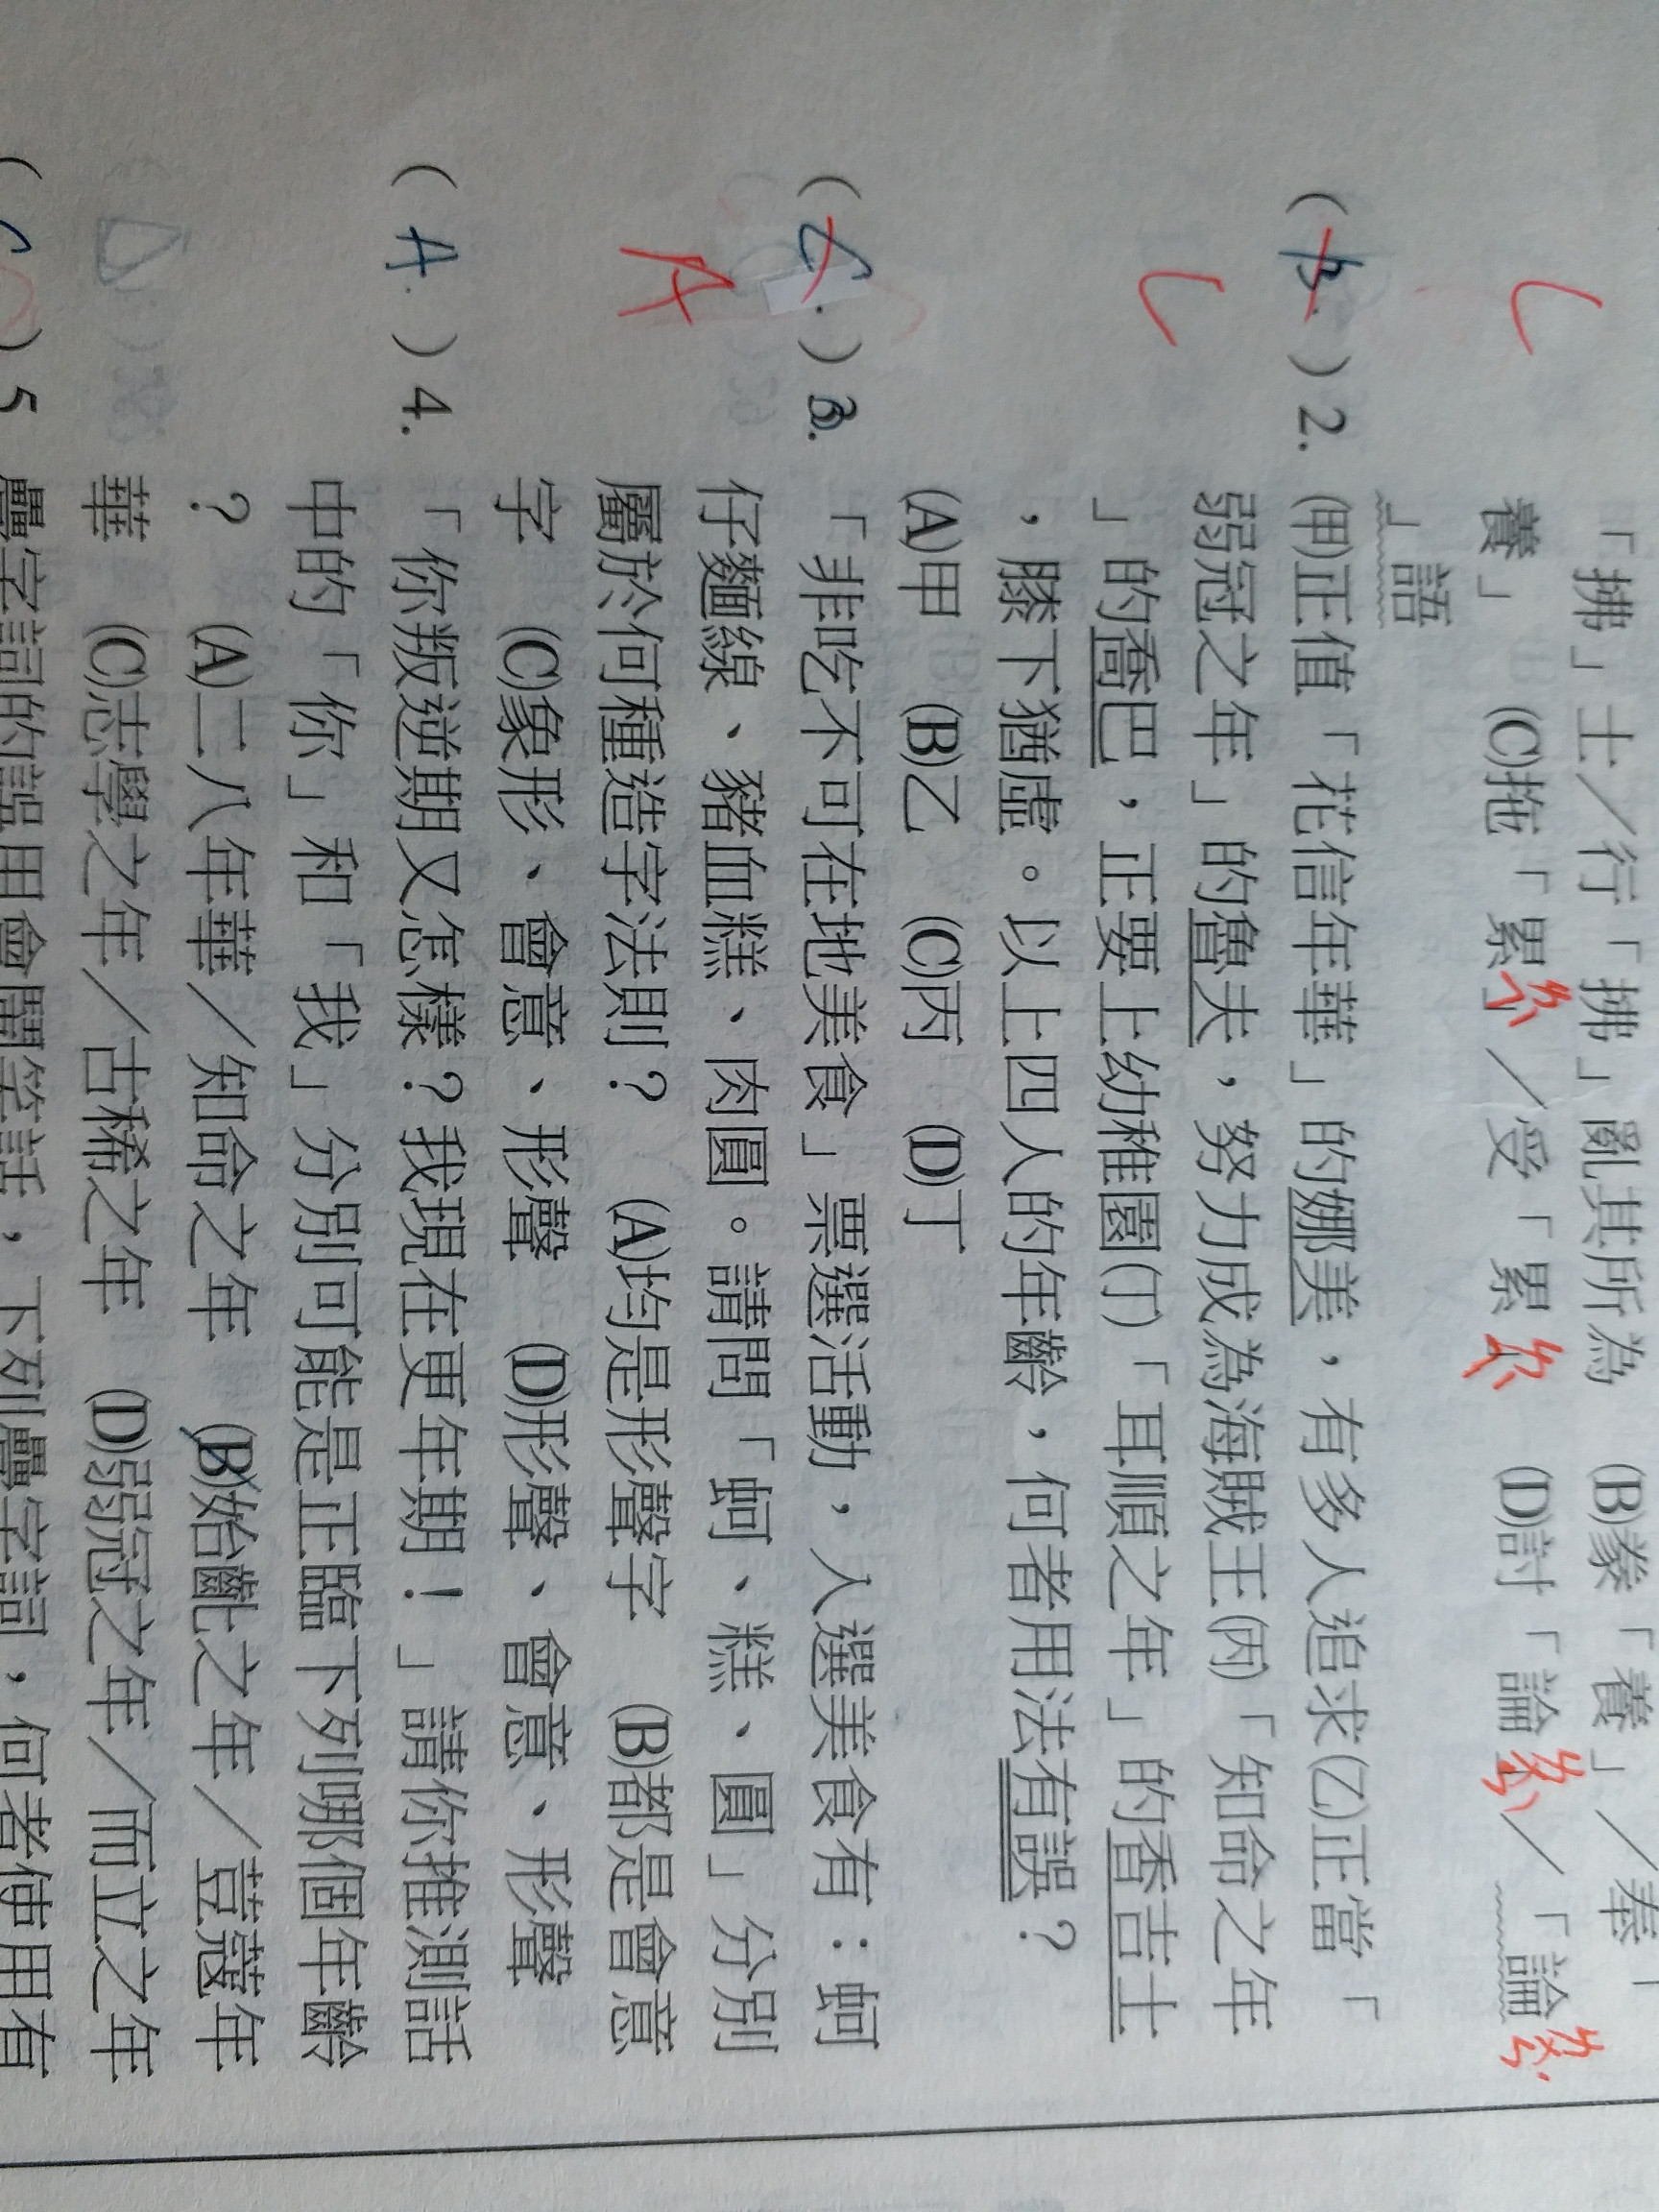 「拂」士／行「拂」亂其所為　(B)豢「養」／奉「
養」　(C)拖「累」ㄌㄟˋ／受「累」ㄌㄟˋ　(D)討「論」ㄌㄨㄣˋ／「論
」語
C
(B.)2.(甲)正值「花信年華」的娜美，有多人追求(乙)正當「
弱冠之年」的魯夫，努力成為海賊王(丙)「知命之年
」的喬巴，正要上幼稚園(丁)「耳順之年」的香吉士
，膝下猶虛。以上四人的年齡，何者用法有誤？
(A)甲　(B)乙　(C)丙　(D)丁
C
(C.)3.「非吃不可在地美食」票選活動，入選美食有：蚵
仔麵線、豬血糕、肉圓。請問「蚵、糕、圓」分別
屬於何種造字法則？　(A)均是形聲字　(B)都是會意
字　(C)象形、會意、形聲　(D)形聲、會意、形聲
A
(A.)4.「你叛逆期又怎樣？我現在更年期！」請你推測話
中的「你」和「我」分別可能是正臨下列哪個年齡
？　(A)二八年華／知命之年　(B)始齔之年／荳蔻年
華　(C)志學之年／古稀之年　(D)弱冠之年／而立之年
5 贋字詞的誤用會鬧笑話，下列贋字詞，何者使用有